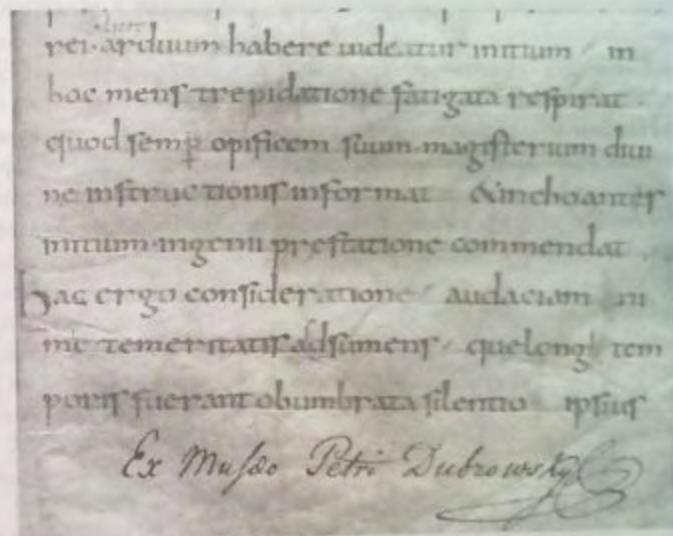 rei · arduum habere uideatur initium / in
hac menſ trepidatione fatigata reſpirat .
quod ſemp̄ opificem ſuum magiſterium diui
ne inſtructioniſ informat & inchoanteſ
initium ingenii preſtatione commendat .
hac ergo conſideratione / audaciam ni
mie temeritatiſ adſumenſ / que longi tem
poriſ fuerant obumbrata ſilentio ipſiuſ
Ex Muſæo Petri Dubrowsky